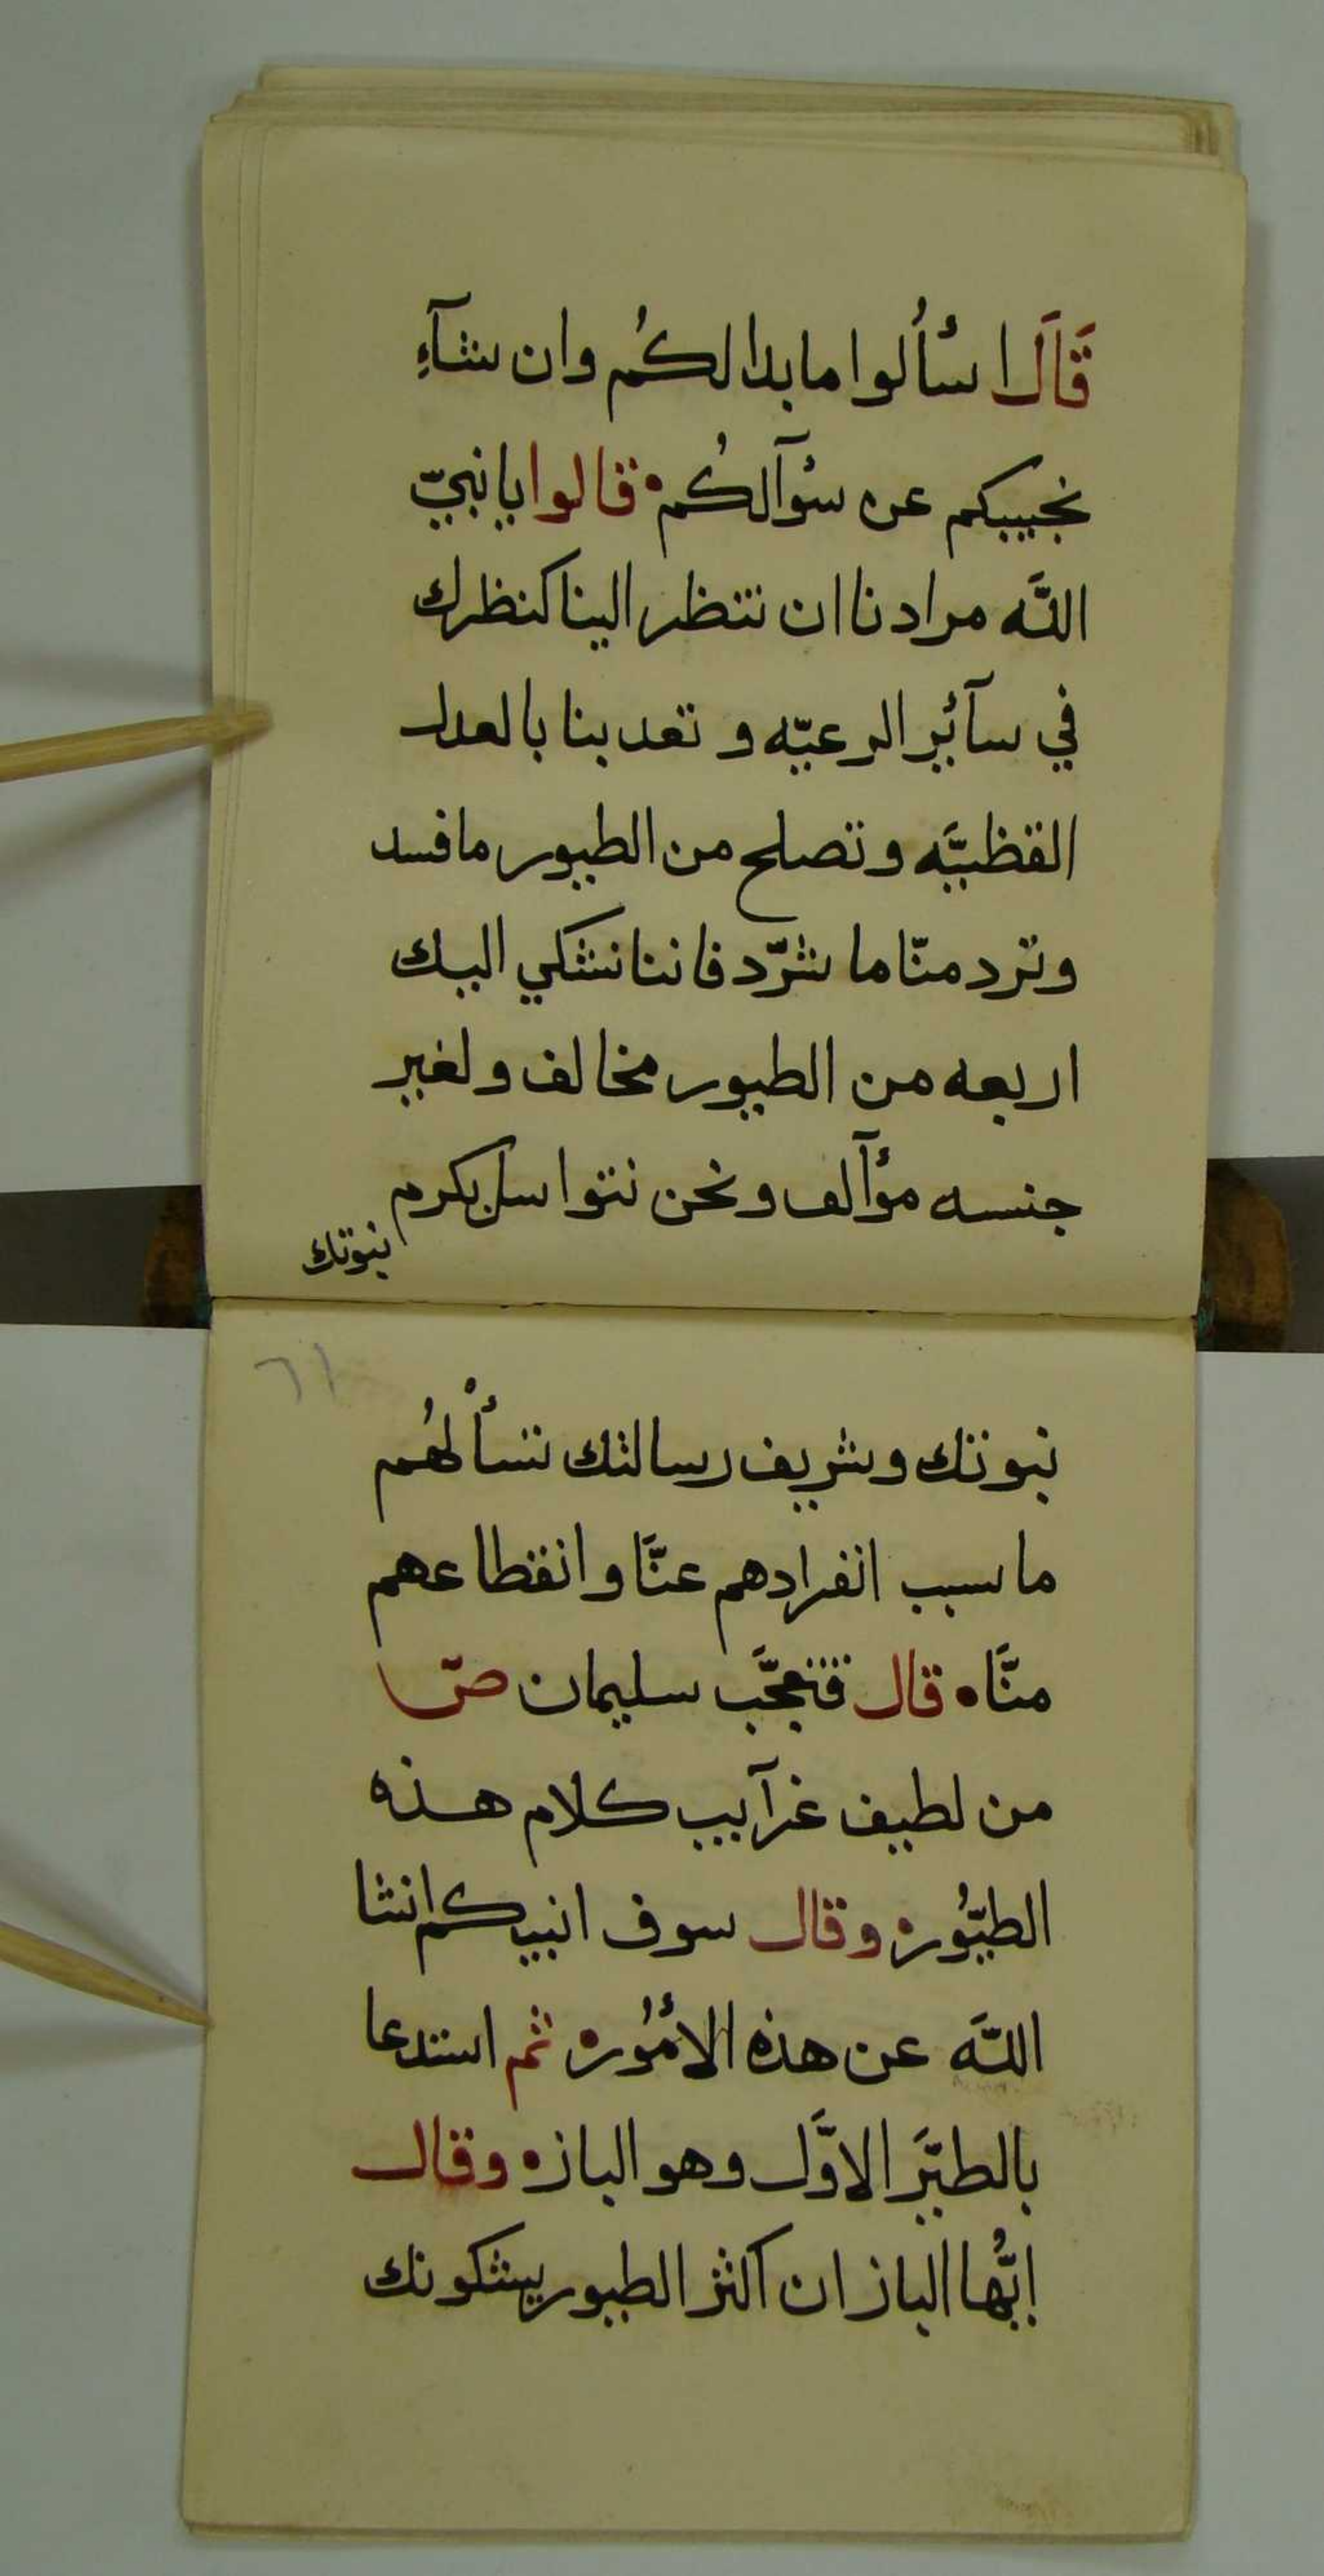 قَالَ اسأُلوا ما بدا لكُم وان شآءِ
نجيبكم عن سؤآلكُم قالوا يا نبيّ
اللَّه مرادنا ان تنظر الينا كنظرك
في سآئر الرعيّه و تعد بنا بالعدل
القظيَّه و تصلح من الطيور ما فسد
وترد منّا ما شرّد فاننا نشكي اليك
اربعه من الطيور مخالف ولغير
جنسه مؤآلف ونحن نتواسل بكرم
نبوتك
٦١
نبوتك وشريف رسالتك تسأْلهُم
ما سبب انفرادهم عنَّا وانقطاعهم
منَّا قال فتعجَّب سليمان صّ
من لطيف غرآيب كلام هذه
الطيّوُر وقال سوف انبيكم انشا
اللَّه عن هذه الأمُور ثم استدعا
بالطيَّر الاوَّل وهو الباز وقال
ايُّها الباز ان اكثر الطيور يشكونك